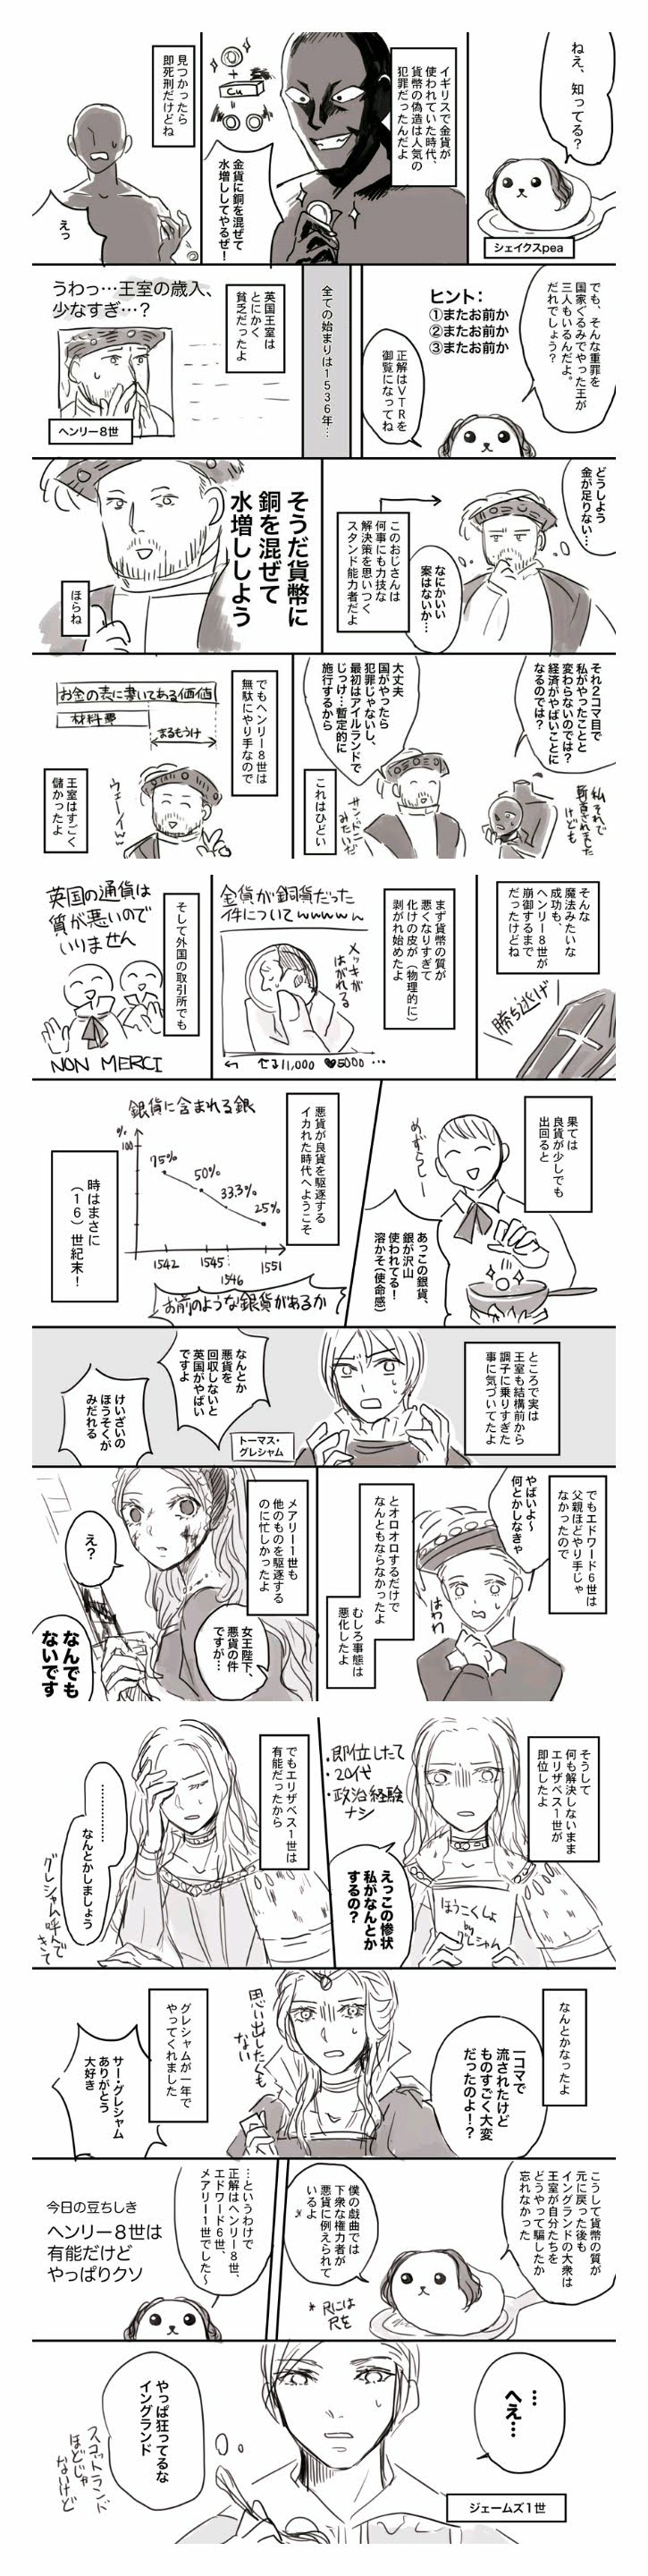 ねえ、知ってる?
シェイクスpea
イギリスで金貨が
使われていた時代、
貨幣の偽造は人気の
犯罪だったんだよ
Cu
金貨に銅を混ぜて
水増ししてやるぜ!
見つかったら
即死刑だけどね
えっ
でも、そんな重罪を
国家ぐるみでやった王が
三人もいるんだよ。
だれでしょう?
ヒント:
①またお前か
②またお前か
③またお前か
正解はVTRを
御覧になってね
全ての始まりは1536年…
英国王室は
とにかく
貧乏だったよ
うわっ…王室の歳入、
少なすぎ…?
ヘンリー8世
どうしよう
金が足りない…
なにかいい
案はないか…
このおじさんは
何事にも力技な
解決策を思いつく
スタンド能力者だよ
そうだ貨幣に
銅を混ぜて
水増ししよう
ほらね
それ2コマ目で
私がやったことと
変わらないのでは?
経済がやばいことに
なるのでは?
私それで
斬首されました
けども
大丈夫
国がやったら
犯罪じゃないし、
最初はアイルランドで
じっけ…暫定的に
施行するから
サンドニ
みたいだ
これはひどい
でもヘンリー8世は
無駄にやり手なので
お金の表に書いてある価値
材料費
まるもうけ
ウェーイw
王室はすごく
儲かったよ
そんな
魔法みたいな
成功も、
ヘンリー8世が
崩御するまで
だったけどね
勝ち逃げ
まず貨幣の質が
悪くなりすぎて
化けの皮が(物理的に)
剥がれ始めたよ
金貨が銅貨だった
件についてwwwwwん
メッキが
はがれる
11,000 ♥5000 …
そして外国の取引所でも
英国の通貨は
質が悪いので
いりません
NON MERCI
果ては
良貨が少しでも
出回ると
めずらしー
あっこの銀貨、
銀が沢山
使われてる!
溶かそ(使命感)
悪貨が良貨を駆逐する
イカれた時代へようこそ
銀貨に含まれる銀
%
100
75%
50%
33.3%
25%
1542
1545
1546
1551
お前のような銀貨があるか
時はまさに
(16)世紀末!
ところで実は
王室も結構前から
調子に乗りすぎた
事に気づいてたよ
トーマス・
グレシャム
なんとか
悪貨を
回収しないと
英国がやばい
ですよ
けいざいの
ほうそくが
みだれる
でもエドワード6世は
父親ほどやり手じゃ
なかったので
やばいよ~
何とかしなきゃ
はわわ
とオロオロするだけで
なんともならなかったよ
むしろ事態は
悪化したよ
メアリー1世も
他のものを駆逐する
のに忙しかったよ
女王陛下、
悪貨の件
ですが…
え?
なんでも
ないです
そうして
何も解決しないまま
エリザベス1世が
即位したよ
・即位したて
・20代
・政治経験
ナシ
ほうこくしょ
by
グレシャム
えっこの惨状
私がなんとか
するの?
でもエリザベス1世は
有能だったから
…………
なんとかしましょう
グレシャム呼んで
きて
なんとかなったよ
一コマで
流されたけど
ものすごく大変
だったのよ!?
思い出したくも
ない
グレシャムが一年で
やってくれました
サー・グレシャム
ありがとう
大好き
こうして貨幣の質が
元に戻った後も
イングランドの大衆は
王室が自分たちを
どうやって騙したか
忘れなかった
僕の戯曲では
下衆な権力者が
悪貨に例えられて
いるよ
*Rには
Rを
…というわけで
正解はヘンリー8世、
エドワード6世、
メアリー1世でした~
今日の豆ちしき
ヘンリー8世は
有能だけど
やっぱりクソ
…
へえ…
ジェームズ1世
やっぱ狂ってるな
イングランド
スコットランド
ほどじゃ
ないけど